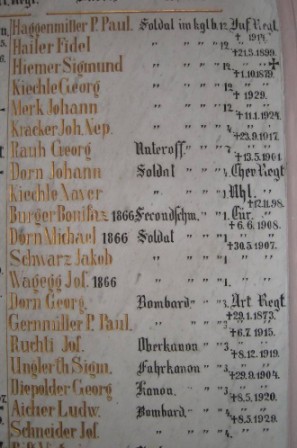 Haggenmiller P. Paul. Soldat im kglb. 12. Inf. Regt.
† 1914.
Hailer Fidel " " " 12. " "
† 21.5.1899.
Hiemer Sigmund " " " 12. " "
† 1.10.1879.
Kiechle Georg " " " 12. " "
† 1929.
Merk Johann " " " 12. " "
† 11.1.1924.
Kracker Joh. Nep. " " " " "
† 23.9.1917.
Rauh Georg Unteroff. " " " "
† 13.5.1901.
Dorn Johann Soldat " " Chev Regt
Kiechle Xaver " " " 1. Uhl. "
† 12.11.98.
Burger Bonifaz 1866 Secondschm. " " 1. Cür. "
† 6.6.1908.
Dorn Michael 1866 Soldat " " 1. " "
† 30.5.1907.
Schwarz Jakob " " " 1. " "
Wagegg Jos. 1866 " " " 1. " "
Dorn Georg. Bombard. " " Art Regt
† 29.1.1873.
Gernmiller P. Paul. " " " "
† 6.7.1915.
Ruchti Jos. Oberkanon. " " 3. " "
† 8.12.1919.
Unglerth Sigm. Fahrkanon " " 3. " "
† 29.9.1904.
Diepolder Georg Kanon. " " " "
† 8.5.1920.
Aicher Ludw. Bombard. " " 4. " "
† 8.3.1929.
Schneider Jos. " " " 4. " "